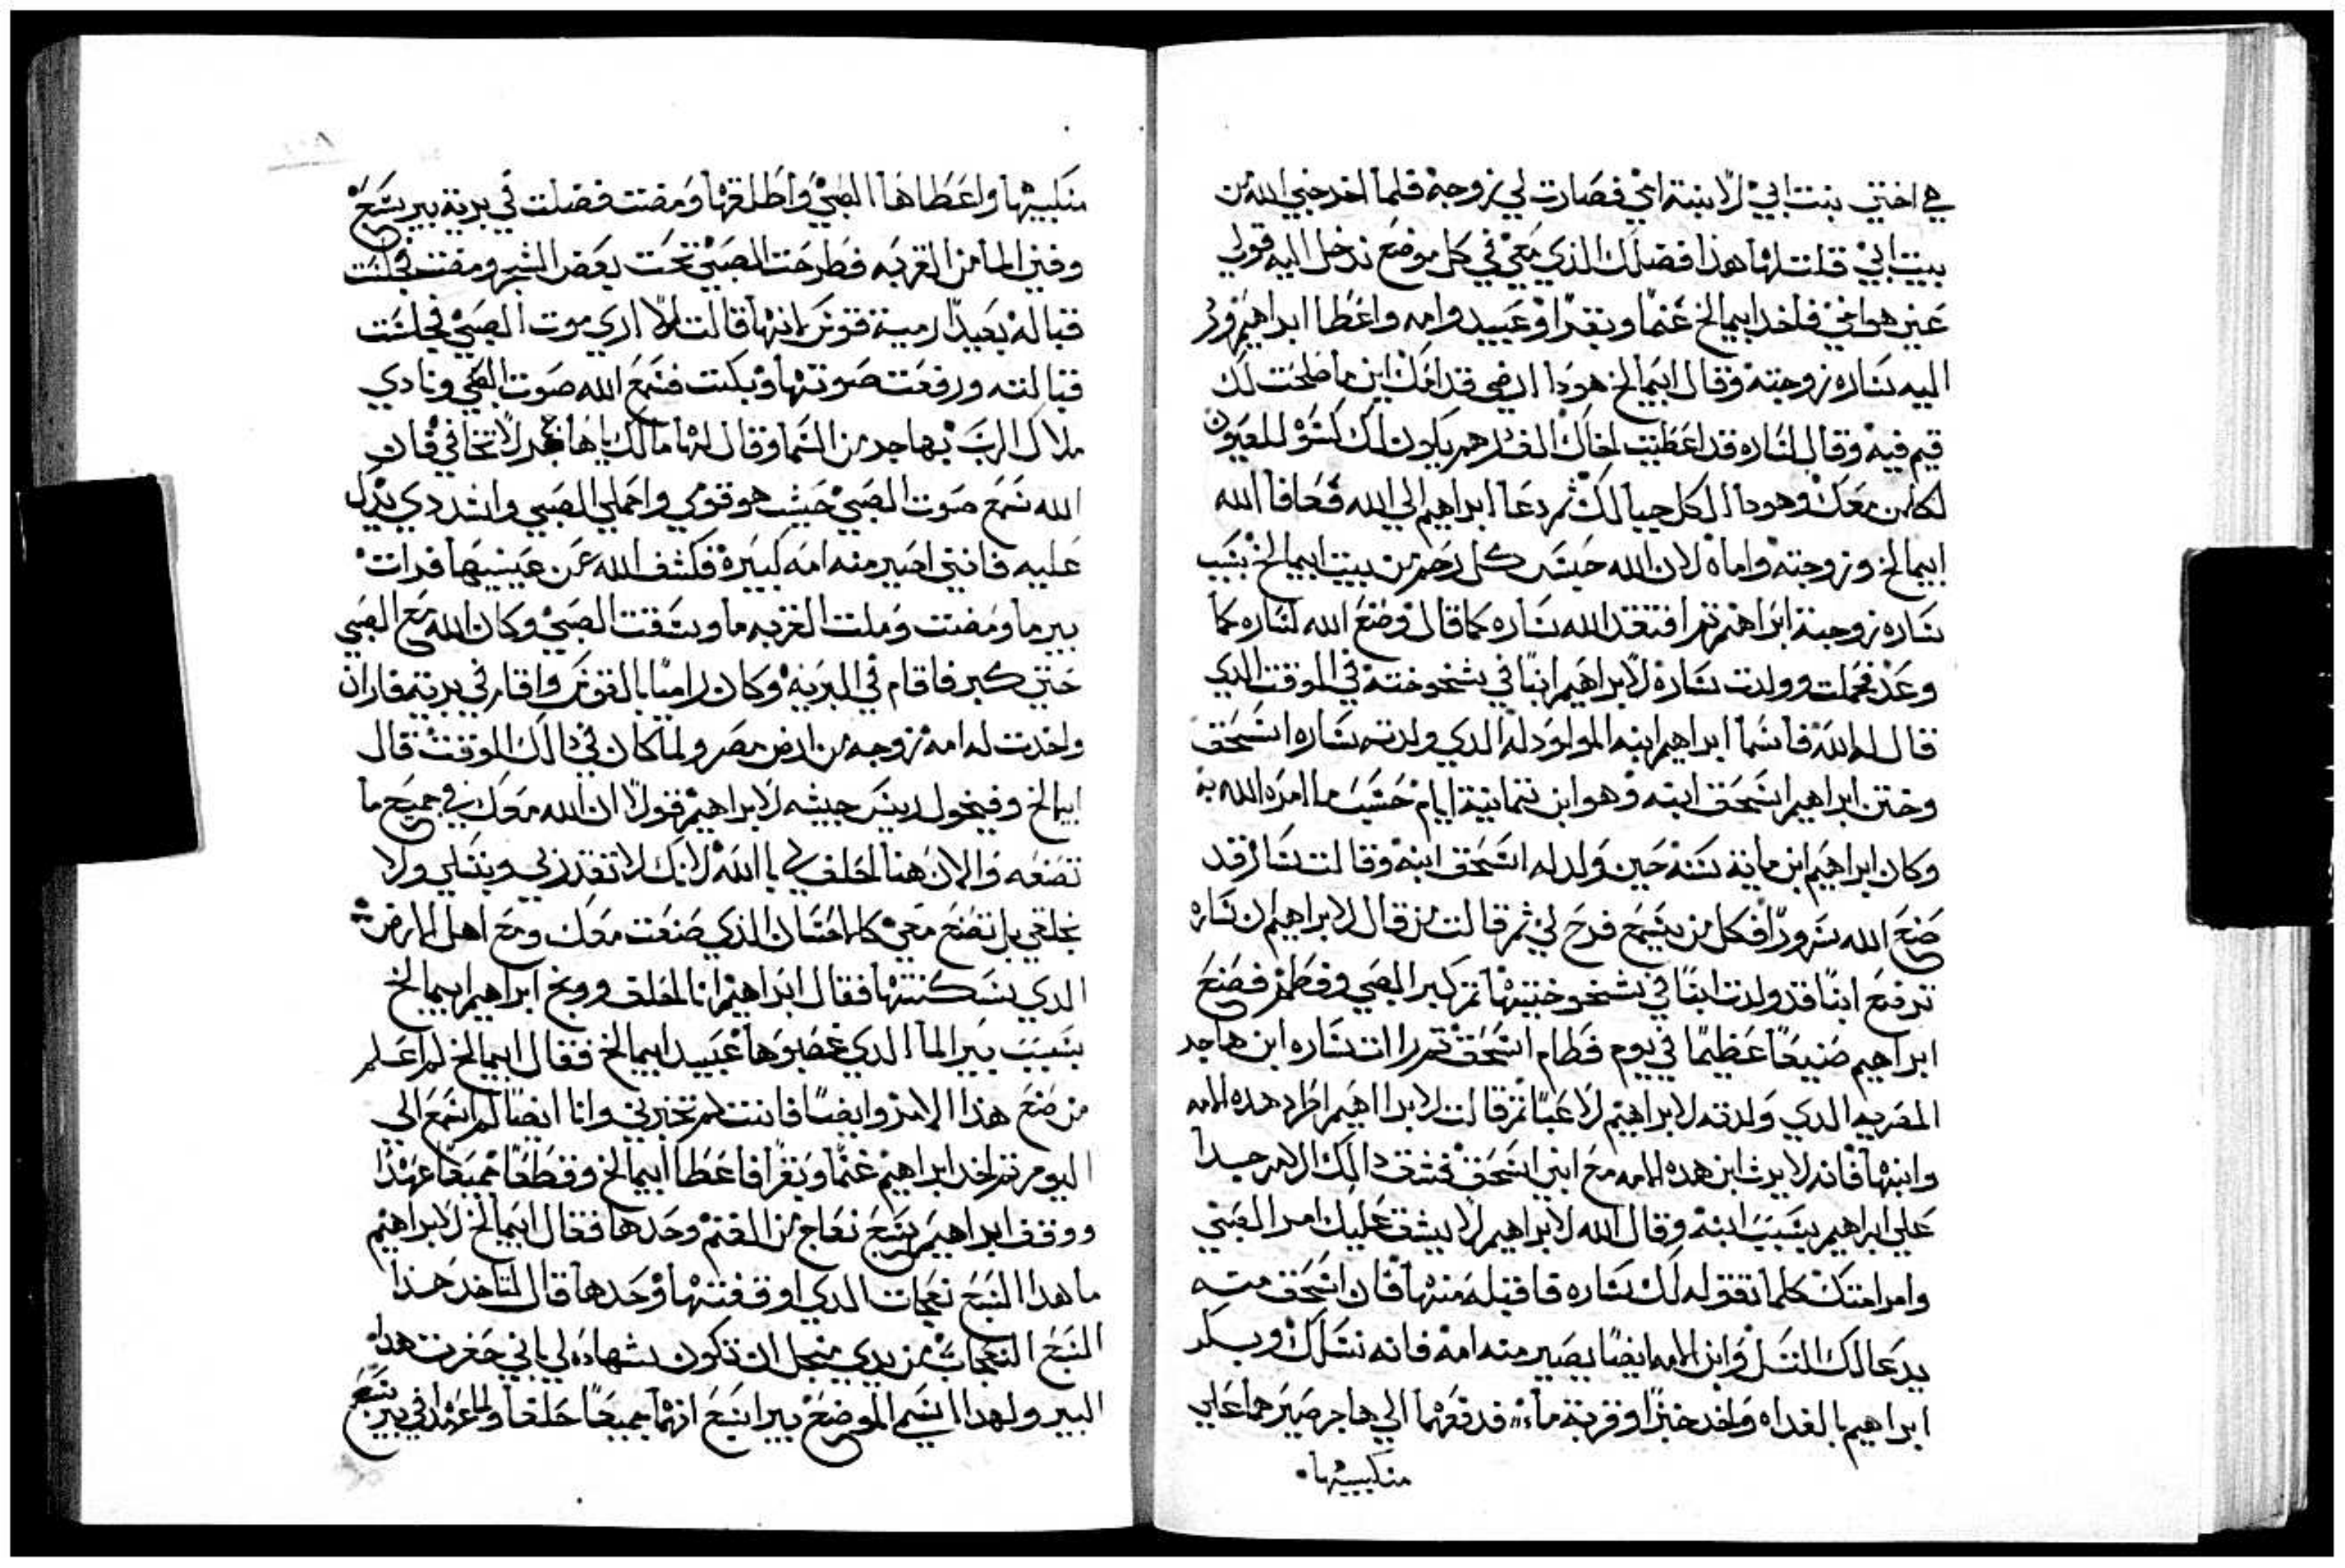 هي اختي بنت ابي لا ابنة امي فصارت لي زوجة فلما اخرجني الله من
بيت ابي قلت لها هذا فضلك الذي معي في كل موضع ندخل اليه قولي
عني هو اخي فاخد ابيمالخ غنما وبقرا وعبيد وامه واعطا ابراهيم ورد
اليه ساره زوجته وقال ابيمالخ هودا ارضي قدامك اين ما صلحت لك
قيم فيه وقال لساره قد اعطيت اخاك الف درهم يكون لك كسوة للعيون
لكل من معك وهودا الكل حيا لك ثم دعا ابراهيم الي الله فعافا الله
ابيمالخ وزوجته واماه لان الله حبس كل رحم من بيت ابيمالخ بسبب
ساره زوجة ابراهيم ثم افتقد الله ساره كما قال وصنع الله لساره كما
وعد فحملت وولدت ساره لابراهيم ابنا في شيخوخته في الوقت الدي
قال له الله فاسما ابراهيم ابنه المولود له الدي ولدته ساره اسحق
وختن ابراهيم اسحق ابنه وهو ابن تمانية ايام حسب ما امره الله به
وكان ابراهيم ابن ماية سنة حين ولد له اسحق ابنه وقالت ساره قد
صنع الله سرورا فكل من يسمع فرح لي ثم قالت من قال لابراهيم ان ساره
ترضع ابنا قد ولدت ابنا في شيخوختها ثم كبر الصبي وفطم فصنع
ابراهيم صنيعا عظيما في يوم فطام اسحق ثم رات ساره ابن هاجر
المصريه الدي ولدته لابراهيم لاعبا ثم قالت لابراهيم اطرد هده الامه
وابنها فانه لا يرث ابن هده الامه مع ابني اسحق فشق دالك الامر جدا
علي ابراهيم بسبب ابنه وقال الله لابراهيم لا يشق عليك امر الصبي
وامر امتك كلما تقوله لك ساره فاقبله منها فان اسحق منه
يدعا لك النسل وابن الامه ايضا يصير منه امه فانه نسلك وبكر
ابراهيم بالغداه واخد خبزا وقربة ماء فدفعهما الي هاجر صيرهما علي
منكبيها
منكبيها واعطاها الصبي واطلقها ومضت فضلت في برية بير سبع
وفني الما من القربه فطرحت الصبي تحت بعض الشجر ومضت فجلست
قباله بعيدا رمية قوس لانها قالت لا اري موت الصبي فجلست
قبالته ورفعت صوتها وبكت فسمع الله صوت الصبي ونادي
ملاك الرب بهاجر من السما وقال لها مالك يا هاجر لا تخافي فان
الله سمع صوت الصبي حيث هو قومي واحملي الصبي واشددي يدك
عليه فانني اصير منه امه كبيرة فكشف الله عن عينيها فرات
بير ما ومضت وملت القربه ما وسقت الصبي وكان الله مع الصبي
حتي كبر فاقام في البريه وكان راميا بالقوس واقام في برية فاران
واخدت له امه زوجه من ارض مصر ولما كان في دالك الوقت قال
ابيمالخ وفيخول ريس جيشه لابراهيم قولا ان الله معك في جميع ما
تصنعه والان هنا احلف لي بالله لانك لا تقدر بي وبنسلي ولا
بخلفي بل تصنع معي كالاحسان الذي صنعت معك ومع اهل الارض
الدي سكنتها فقال ابراهيم انا احلف ووبخ ابراهيم ابيمالخ
بسبب بير الما الدي غصبوها عبيد ابيمالخ فقال ابيمالخ لم اعلم
من صنع هذا الامر وايضا فانت لم تخبرني وانا ايضا لم اسمع الي
اليوم ثم اخد ابراهيم غنما وبقرا فاعطا ابيمالخ وقطعا جميعا عهدا
ووقف ابراهيم سبع نعاج من الغنم وحدها فقال ابيمالخ لابراهيم
ما هدا السبع نعجات الدي اوقفتها وحدها قال لتاخد هدا
السبع النعجات من يدي منجل ان تكون شهاده لي باني حفرت هده
البير ولهدا اسم الموضع بير السبع انهما جميعا حلفا ولما عهدا في بير سبع